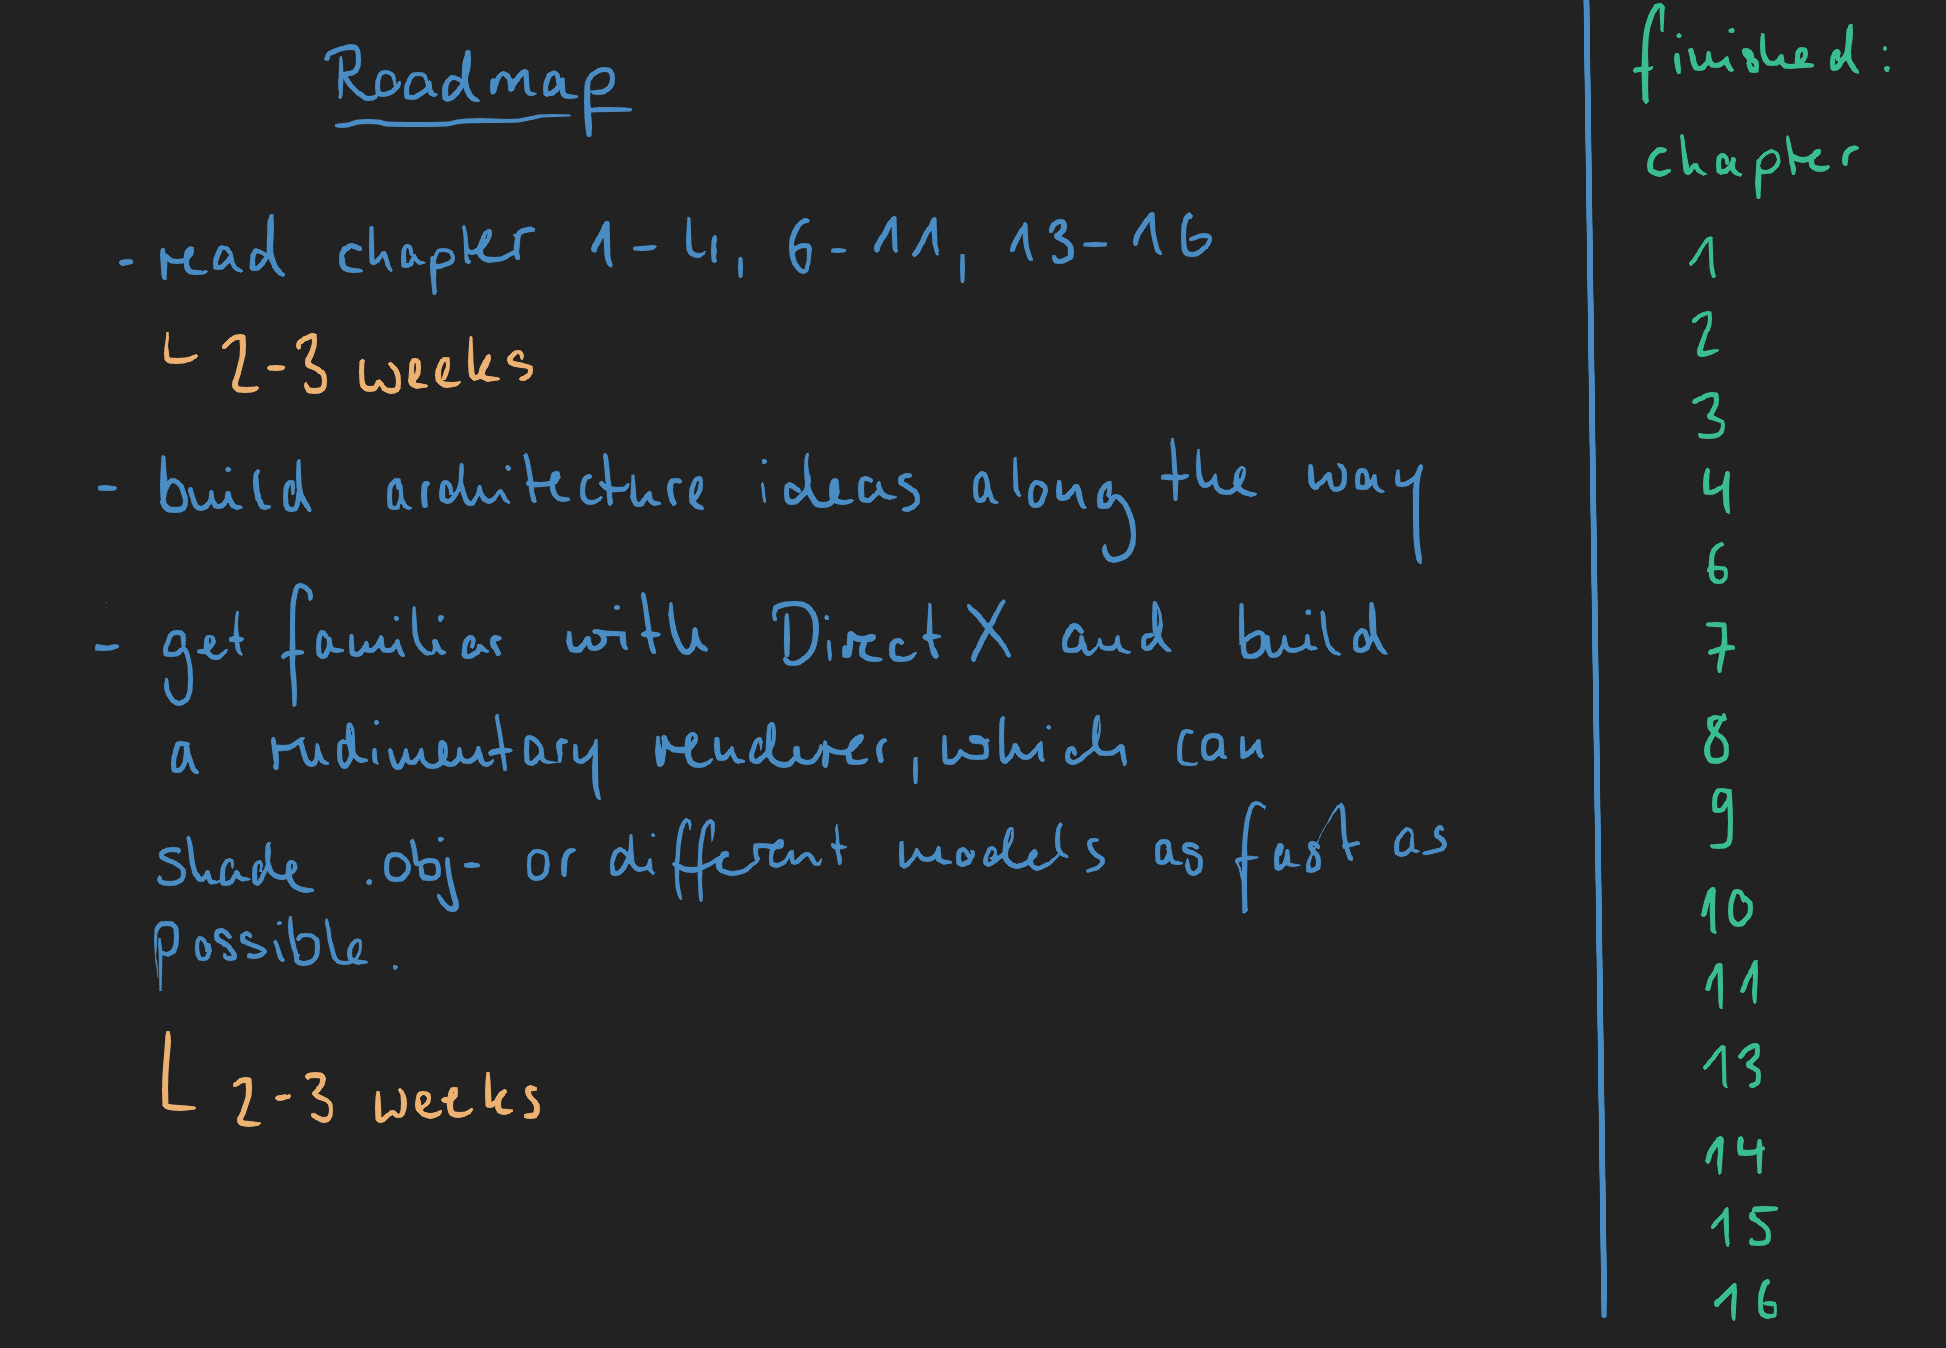 Roadmap
- read chapter 1-4, 6-11, 13-16
2-3 weeks
- build architecture ideas along the way
- get familiar with DirectX and build
a rudimentary renderer, which can
shade .obj- or different models as fast as
possible.
2-3 weeks
finished:
chapter
1
2
3
4
6
7
8
9
10
11
13
14
15
16